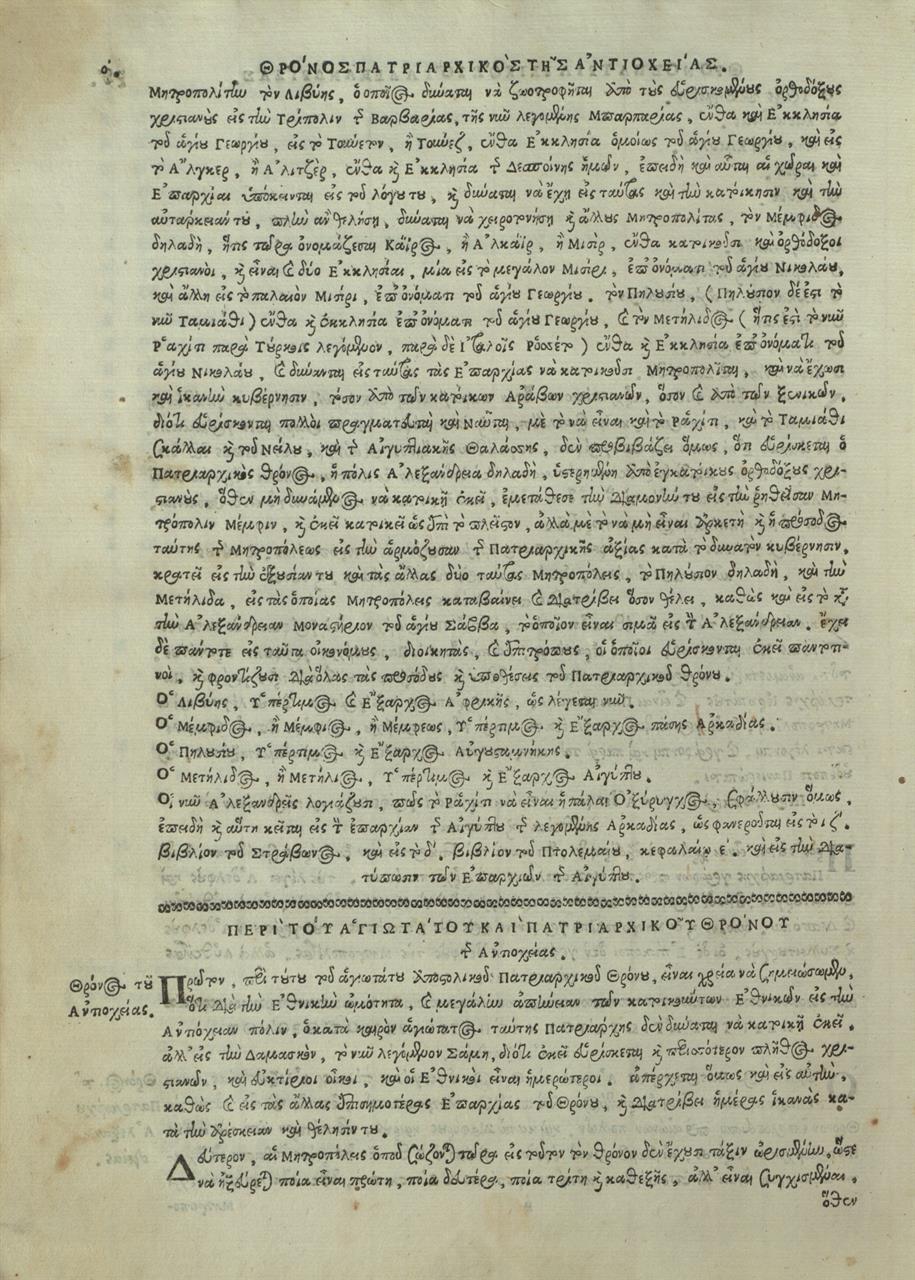 ο΄. ΘΡΟ'ΝΟΣ ΠΑΤΡΙΑΡΧΙΚΟ`Σ ΤΗ~Σ Α'ΝΤΙΟΧΕΙ'ΑΣ.
Μητροπολίτην τὸν Λιβύης, ὁ ὁποῖος δύναται νὰ ζωοτροφῆται ἀπὸ τοὺς εὑρισκομένους ὀρθοδόξους
χριστιανοὺς εἰς τὴν Τρίπολιν τῆς Βαρβαρίας, τῆς νῦν λεγομένης Μπαρπαρίας, ἔνθα καὶ Ἐκκλησία
τοῦ ἁγίου Γεωργίου, εἰς τὸ Τούνεζι, ἢ Τούνεζ, ἔνθα Ἐκκλησία ὁμοίως τοῦ ἁγίου Γεωργίου, καὶ εἰς
τὸ Ἄλγκερ, ἢ Ἀλιτζὲρ, ἔνθα καὶ Ἐκκλησία τῆς Δεσποίνης ἡμῶν, ἐπειδὴ καὶ αὗται αἱ χῶραι καὶ
Ἐπαρχίαι ὑπόκεινται εἰς τοῦ λόγου του, καὶ δύναται νὰ ἔχῃ εἰς ταύτας καὶ τὴν κατοίκησιν καὶ τὴν
αὐτάρκειάν του, πλὴν ἂν θελήσῃ, δύναται νὰ χειροτονήσῃ καὶ ἄλλους Μητροπολίτας, τὸν Μέμφιδος
δηλαδὴ, ἥτις τώρα ὀνομάζεται Κάϊρος, ἢ Ἀλκάϊρ, ἢ Μισὴρ, ἔνθα κατοικοῦσι καὶ ὀρθόδοξοι
χριστιανοὶ, καὶ εἶναι καὶ δύο Ἐκκλησίαι, μία εἰς τὸ μεγάλον Μισίρι, ἐπ' ὀνόματι τοῦ ἁγίου Νικολάου,
καὶ ἄλλη εἰς τὸ παλαιὸν Μισίρι, ἐπ' ὀνόματι τοῦ ἁγίου Γεωργίου. τὸν Πηλουσίου, (Πηλούσιον δέ ἐστι τὸ
νῦν Ταμιάθι) ἔνθα καὶ ἐκκλησία ἐπ' ὀνόματι τοῦ ἁγίου Γεωργίου, καὶ τὸν Μετήλιδος (ἥτις ἐστὶ τὸ νῦν
Ῥαχίτι παρὰ Τούρκοις λεγόμενον, παρὰ δὲ Ἰταλοῖς Ῥοσέτ) ἔνθα καὶ Ἐκκλησία ἐπ' ὀνόματι τοῦ
ἁγίου Νικολάου, καὶ δύνανται εἰς ταύτας τὰς Ἐπαρχίας νὰ κατοικοῦσι Μητροπολῖται, καὶ νὰ ἔχωσι
καὶ ἱκανὴν κυβέρνησιν, τόσον ἀπὸ τῶν κατοίκων Ἀράβων χριστιανῶν, ὅσον καὶ ἀπὸ τῶν ξενικῶν,
διότι εὑρίσκονται πολλοὶ πραγματευταὶ καὶ Ναῦται, μὲ τὸ νὰ εἶναι καὶ τὸ Ῥαχίτι, καὶ τὸ Ταμιάθι
σκάλλαι καὶ τοῦ Νείλου, καὶ τῆς Αἰγυπτιακῆς Θαλάσσης, δὲν προβιβάζει ὅμως, ὅτι εὑρίσκεται ὁ
Πατριαρχικὸς θρόνος, ἡ πόλις Ἀλεξάνδρεια δηλαδὴ, ὑστερημένη ἀπὸ ἐγκατοίκους ὀρθοδόξους χρι-
στιανοὺς, ὅθεν μὴ δυνάμενος νὰ κατοικῇ ἐκεῖ, ἐμετάθεσε τὴν διαμονήν του εἰς τὴν ῥηθεῖσαν Μη-
τρόπολιν Μέμφιν, καὶ ἐκεῖ κατοικεῖ ὡς ἐπὶ τὸ πλεῖστον, ἀλλὰ μὲ τὸ νὰ μὴ εἶναι ἀρκετὴ καὶ ἡ πρόσοδος
ταύτης τῆς Μητροπόλεως εἰς τὴν ἁρμόζουσαν τῆς Πατριαρχικῆς ἀξίας κατὰ τὸ δυνατὸν κυβέρνησιν,
κρατεῖ εἰς τὴν ἐξουσίαν του καὶ τὰς ἄλλας δύο ταύτας Μητροπόλεις, τὸ Πηλούσιον δηλαδὴ, καὶ τὴν
Μετήλιδα, εἰς τὰς ὁποίας Μητροπόλεις καταβαίνει καὶ διατρίβει ὅσον θέλει, καθὼς καὶ εἰς τὸ κατὰ
τὴν Ἀλεξάνδρειαν Μοναστήριον τοῦ ἁγίου Σάββα, τὸ ὁποῖον εἶναι σιμὰ εἰς τὴν Ἀλεξάνδρειαν. ἔχει
δὲ πάντοτε εἰς ταῦτα οἰκονόμους, διοικητὰς, καὶ ἐπιτρόπους, οἱ ὁποῖοι εὑρίσκονται ἐκεῖ παντοτι-
νοὶ, καὶ φροντίζουσι διὰ ὅλας τὰς προσόδους καὶ ὑποθέσεις τοῦ Πατριαρχικοῦ θρόνου.
Ὁ Λιβύης, Ὑπέρτιμος καὶ Ἔξαρχος Ἀφρικῆς, ὡς λέγεται νῦν.
Ὁ Μέμφιδος, ἢ Μέμφιος, ἢ Μέμφεως, Ὑπέρτιμος καὶ Ἔξαρχος πάσης Ἀρκαδίας.
Ὁ Πηλουσίου, Ὑπέρτιμος καὶ Ἔξαρχος Αὐγουσταμνήκης.
Ὁ Μετήλιδος, ἢ Μετήλιος, Ὑπέρτιμος καὶ Ἔξαρχος Αἰγύπτου.
Οἱ νῦν Ἀλεξανδρεῖς λογιάζουσι, πῶς τὸ Ραχίτι νὰ εἶναι ἡ πάλαι Ὀξύρυγχος, σφάλλουσιν ὅμως,
ἐπειδὴ καὶ αὕτη κεῖται εἰς τὴν ἐπαρχίαν τῆς Αἰγύπτου τῆς λεγομένης Ἀρκαδίας, ὡς φανεροῦται εἰς τὸ ιζ΄.
βιβλίον τοῦ Στράβωνος, καὶ εἰς τὸ δ΄. βιβλίον τοῦ Πτολεμαίου, κεφαλαίῳ ε΄. καὶ εἰς τὴν Δια-
τύπωσιν τῶν Ἐπαρχιῶν τῆς Αἰγύπτου.
ΠΕΡΙ` ΤΟΥ~ Α'ΓΙΩΤΑ'ΤΟΥ ΚΑΙ` ΠΑΤΡΙΑΡΧΙΚΟΥ~ ΘΡΟ'ΝΟΥ
τῆς Ἀντιοχείας.
Θρόνος τῆς
Ἀντιοχείας.
Πρῶτον, περὶ τούτου τοῦ ἁγιωτάτου ἀποστολικοῦ Πατριαρχικοῦ Θρόνου, εἶναι χρεία νὰ σημειώσωμεν,
ὅτι διὰ τὴν Ἐθνικὴν ὠμότητα, καὶ μεγάλην ἀπώλειαν τῶν κατοικούντων Ἐθνικῶν εἰς τὴν
Ἀντιόχειαν πόλιν, ὁ κατὰ καιρὸν ἁγιώτατος ταύτης Πατριάρχης δὲν δύναται νὰ κατοικῇ ἐκεῖ.
ἀλλ' εἰς τὴν Δαμασκὸν, τὸ νῦν λεγόμενον Σάμι, διότι ἐκεῖ εὑρίσκεται καὶ περισσότερον πλῆθος χρι-
στιανῶν, καὶ εὐκτίριοι οἶκοι, καὶ οἱ Ἐθνικοὶ εἶναι ἡμερώτεροι. ἀπέρχεται ὅμως καὶ εἰς αὐτὴν,
καθὼς καὶ εἰς τὰς ἄλλας ἐπισημοτέρας Ἐπαρχίας τοῦ Θρόνου, καὶ διατρίβει ἡμέρας ἱκανὰς κα-
τὰ τὴν ἀρέσκειαν καὶ θέλησίν του.
Δεύτερον, αἱ Μητροπόλεις ὁποῦ σώζονται τώρα εἰς τοῦτον τὸν θρόνον δὲν ἔχουσι τάξιν ὡρισμένην, ὥστε
νὰ ἠξεύρεται ποία εἶναι πρώτη, ποία δευτέρα, ποία τρίτη καὶ καθεξῆς, ἀλλ' εἶναι συγχισμέναι.
ὅθεν